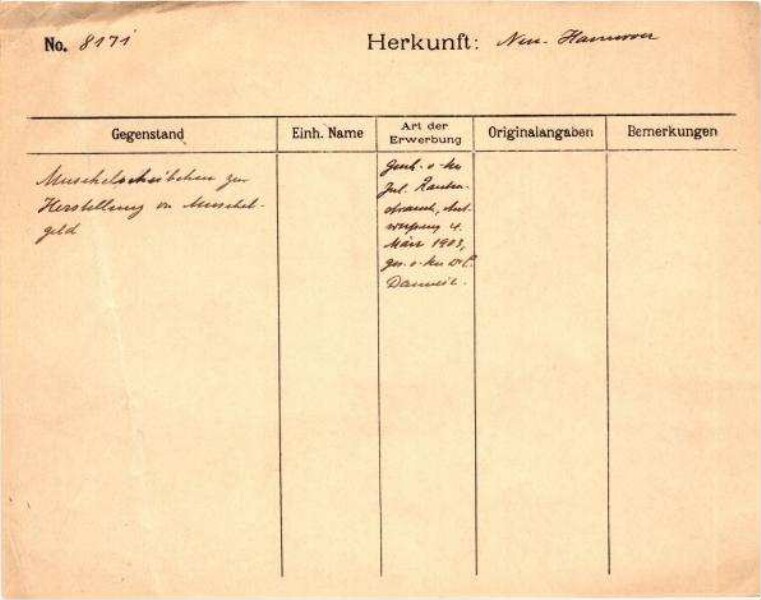 No. 8171 Herkunft: Neu-Hannover
Gegenstand Einh. Name Art der Erwerbung Originalangaben Bemerkungen
Muschelscheibchen zur
Herstellung von Muschel-
geld
Gesch. v.
Jul. Rauten-
strauch, Ant-
werpen 4.
März 1903,
ges. v.